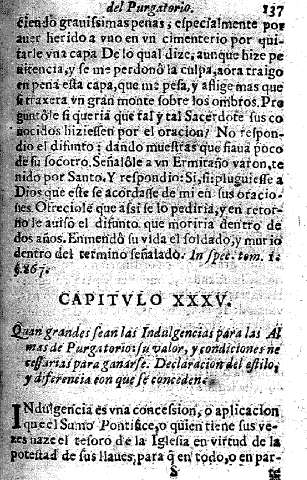 del Purgatorio. 137
ciendo grauissimas penas, especialmente por
auer herido a vno en vn cimenterio por qui-
tarle vna capa De lo qual dize, aunque hize pe
nitencia, y se me perdonò la culpa, aora traigo
en pena esta capa, que me pesa, y aflige mas que
si traxera vn gran monte sobre los ombros. Pre
guntòle si queria que tal y tal Sacerdote sus co
nocidos hiziessen por el oracion? No respon-
dio el difunto; dando muestras que fiaua poco
de su socorro. Señalòle a vn Ermitaño varon, te
nido por Santo. Y respondio: Si, si pluguiesse a
Dios que este se acordasse de mi en sus oracio
nes Ofreciole que assi se lo pediria, y en retor-
no le auiso el difunto que moriria dentro de
dos años. Enmendò su vida el soldado, y murio
dentro del termino señalado. In spec. tom. 1.
§. 267.
CAPITVLO XXXV.
Quan grandes sean las Indulgencias para las Al
mas de Purgatorio: su valor, y condiciones ne
cessarias para ganarse. Declaracion del estilo,
y diferencia con que se conceden.
INdulgencia es vna concession, o aplicacion
que el Sumo Pontifice, o quien tiene sus ve-
zes haze el tesoro de la Iglesia en virtud de la
potestad de sus llaues, para q̃ en todo, o en par-
S te